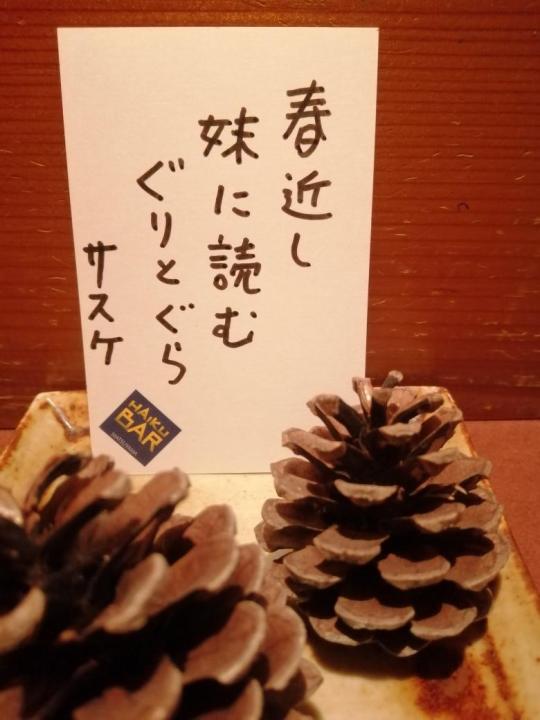 春近し
妹に読む
ぐりとぐら
サスケ
HAIKU
BAR
MATSUYAMA